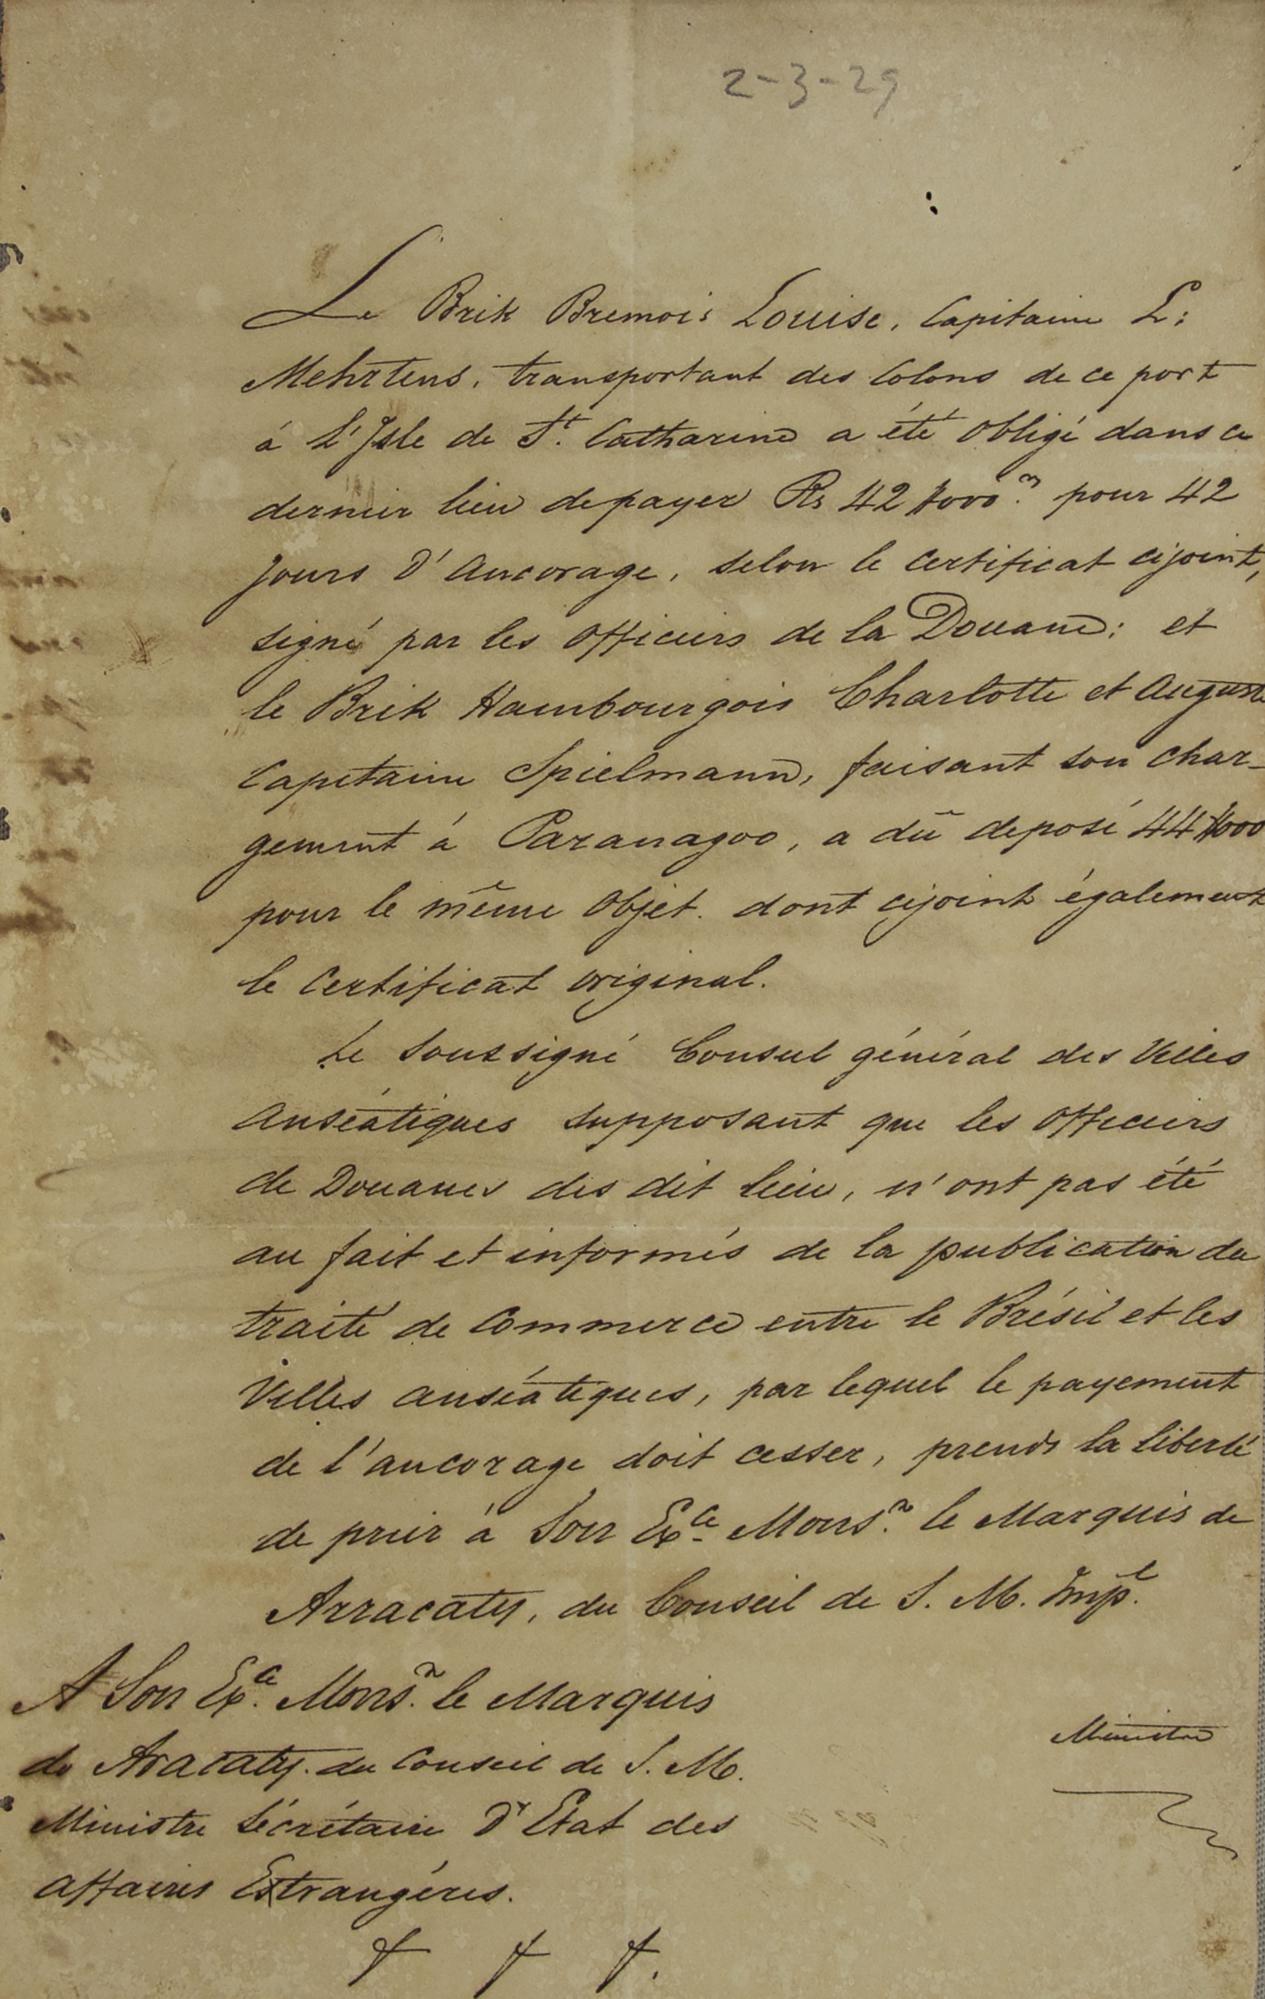 2-3-29
Le Brik Bremois Louise, Capitaine L:
Mehrtens, transportant des Colons de ce port
á L'Isle de St. Catharine a été obligé dans ce
dernier lieu de payer Rs 42$000 pour 42
jours d'ancorage, selon le certificat cijoint,
signé par les officiers de la Douane: et
le Brik Hambourgois Charlotte et Auguste
Capitaine Spielmann, faisant son char-
gement á Paranagoo, a dû deposé 44$000
pour le même objet. dont cijoint également
le certificat original.
Le soussigné Consul général des Villes
anséatiques supposant que les officiers
de Douanes des dit lieu, n'ont pas été
au fait et informés de la publication du
traité de Commerce entre le Brésil et les
Villes anséatiques, par lequel le payement
de l'ancorage doit cesser, prends la liberté
de prier á Son Exce. Monsr. le Marquis de
Arracaty, du Conseil de S. M. Impl.
Ministre
A Son Exce. Monsr. le Marquis
de Aracaty. du Conseil de S. M.
Ministre Sécrétaire d'Etat des
affaires Estrangéres.